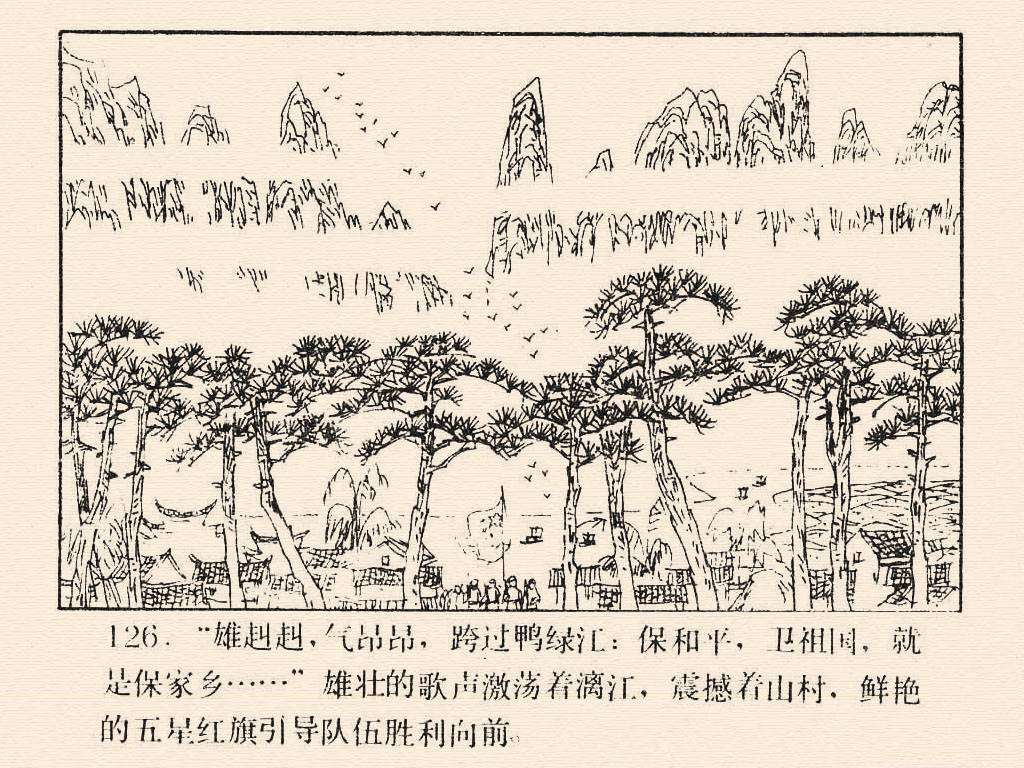 126. “雄赳赳，气昂昂，跨过鸭绿江：保和平，卫祖国，就
是保家乡……” 雄壮的歌声激荡着漓江，震撼着山村，鲜艳
的五星红旗引导队伍胜利向前。